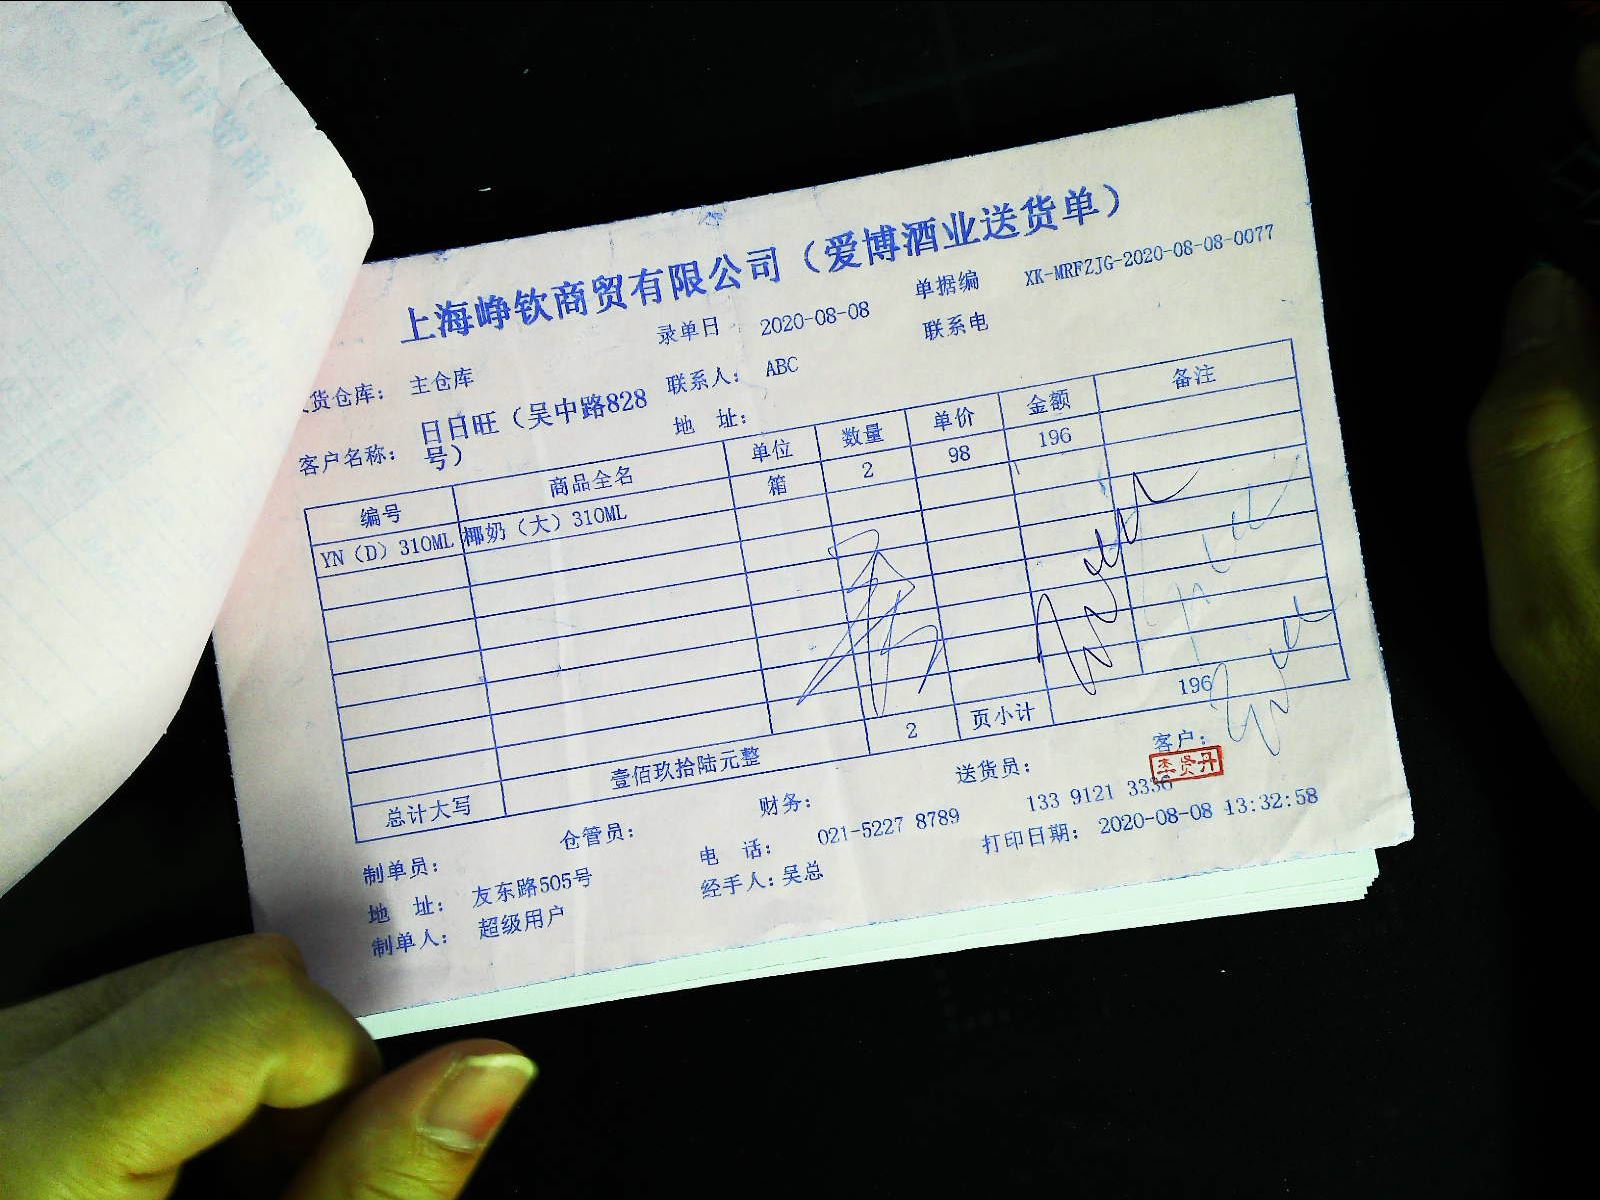 上海峥钦商贸有限公司（爱博酒业送货单）
录单日 2020-08-08 单据编 XK-MRFZJG-2020-08-08-0077
货仓库： 主仓库 联系人： ABC 联系电
客户名称： 日日旺（吴中路828号） 地 址：
编号 商品全名 单位 数量 单价 金额 备注
YN（D）310ML 椰奶（大）310ML 箱 2 98 196
总计大写 壹佰玖拾陆元整 2 页小计 196
制单员： 仓管员： 财务： 送货员： 客户：
李贤丹
地 址： 友东路505号 电 话： 021-5227 8789 133 9121 3336
制单人： 超级用户 经手人：吴总 打印日期： 2020-08-08 13:32:58